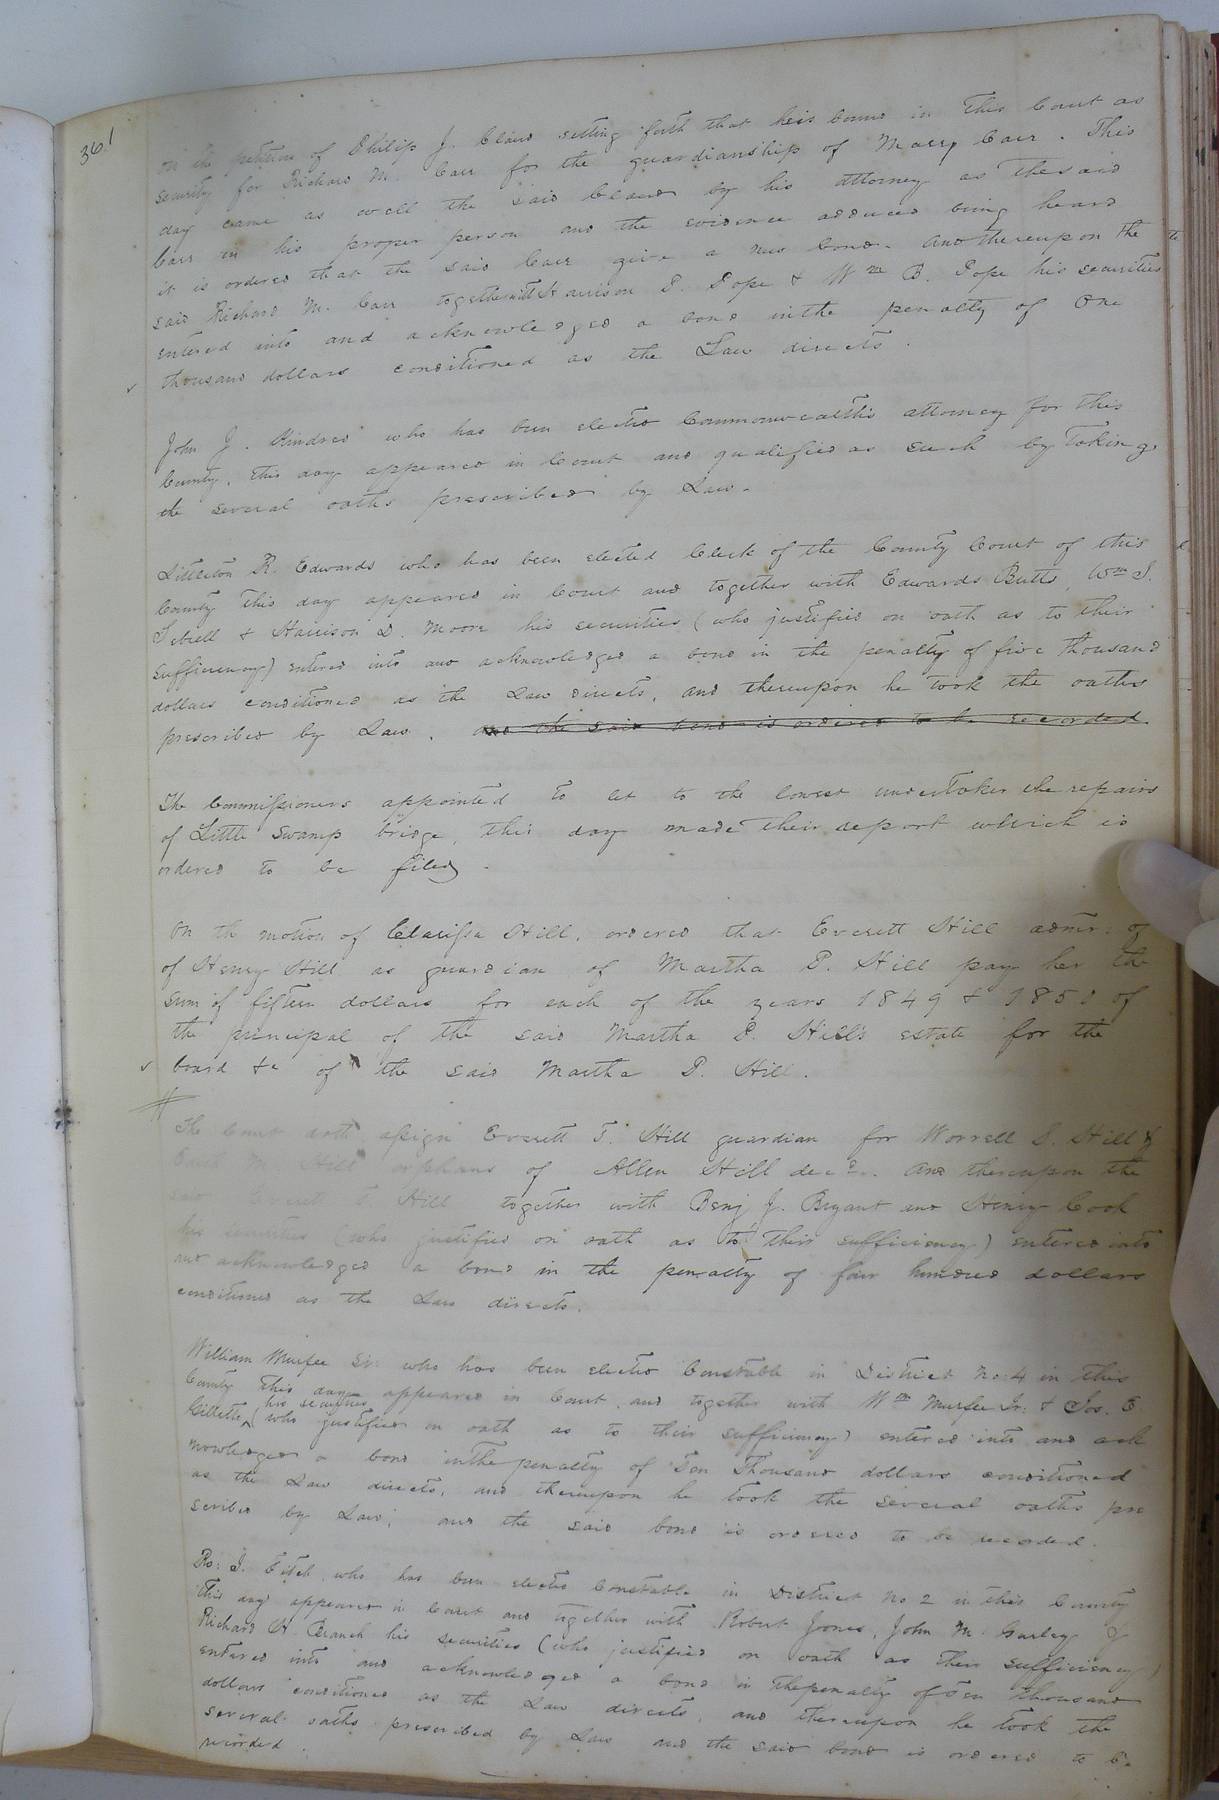 361
on the petition of Philip J. Claud setting forth that he is bound in this Court as
security for Richard M. Carr for the guardianship of Mary Carr. This
day came as well the said Claud by his attorney as the said
Carr in his proper person and the evidence adduced being heard
it is ordered that the said Carr give a new bond. And thereupon the
said Richard M. Carr together with Harrison P. Pope & Wm B. Pope his securities
entered into and acknowledged a bond in the penalty of One
thousand dollars conditioned as the Law directs.
John J. Kindred who has been elected Commonwealth's attorney for this
County, this day appeared in Court and qualified as such by taking
the several oaths prescribed by Law.
Littleton R. Edwards who has been elected Clerk of the County Court of this
County this day appeared in Court and together with Edwards Butts, Wm J.
Sebrell & Harrison D. Moore his securities (who justified on oath as to their
sufficiency) entered into and acknowledged a bond in the penalty of five thousand
dollars conditioned as the Law directs, and thereupon he took the oaths
prescribed by Law. and the said bond is ordered to be recorded.
The Commissioners appointed to let to the lowest undertaker the repairs
of Little Swamp bridge, this day made their report which is
ordered to be filed.
On the motion of Clarissa Hill, ordered that Everett Hill admr. of
of Henry Hill as guardian of Martha P. Hill pay her the
sum of fifteen dollars for each of the years 1849 & 1850 of
the principal of the said Martha P. Hill's estate for the
board &c of the said Martha P. Hill.
The Court doth assign Everett T. Hill guardian for Worrell S. Hill &
M. Hill orphans of Allen Hill decd. And thereupon the
said Everett T. Hill together with Benj J. Bryant and Henry Cook
his securities (who justified on oath as to their sufficiency) entered into
and acknowledged a bond in the penalty of four hundred dollars
conditioned as the Law directs.
William Murfee Sr. who has been elected Constable in District No. 4 in this
County this day appeared in Court, and together with Wm Murfee Jr. & Jos. E.
Gillette his securities (who justified on oath as to their sufficiency) entered into and ack
nowledged a bond in the penalty of Ten Thousand dollars conditioned
as the Law directs, and thereupon he took the several oaths pre
scribed by Law; and the said bond is ordered to be recorded.
Ro: J. who has been elected Constable in District No 2 in this County
this day appeared in Court and together with Robert Jones, John M. Gurley &
Richard H. Branch his securities (who justified on oath as their sufficiency)
entered into and acknowledged a bond in the penalty of Ten Thousand
dollars conditioned as the Law directs, and thereupon he took the
several oaths prescribed by Law and the said bond is ordered to be
recorded.